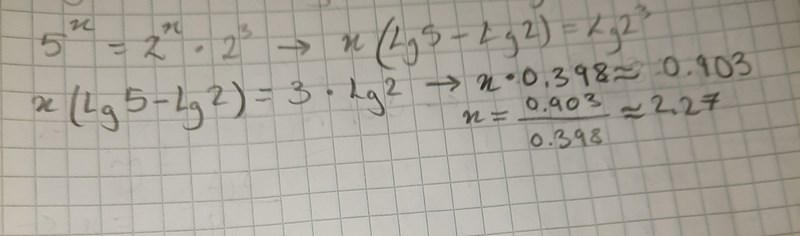 5^x = 2^x · 2^3 → x(Lg5 - Lg2) = Lg2^3
x(Lg5-Lg2) = 3 · Lg2 → x · 0.398 ≈ 0.903
x = 0.903/0.398 ≈ 2.27